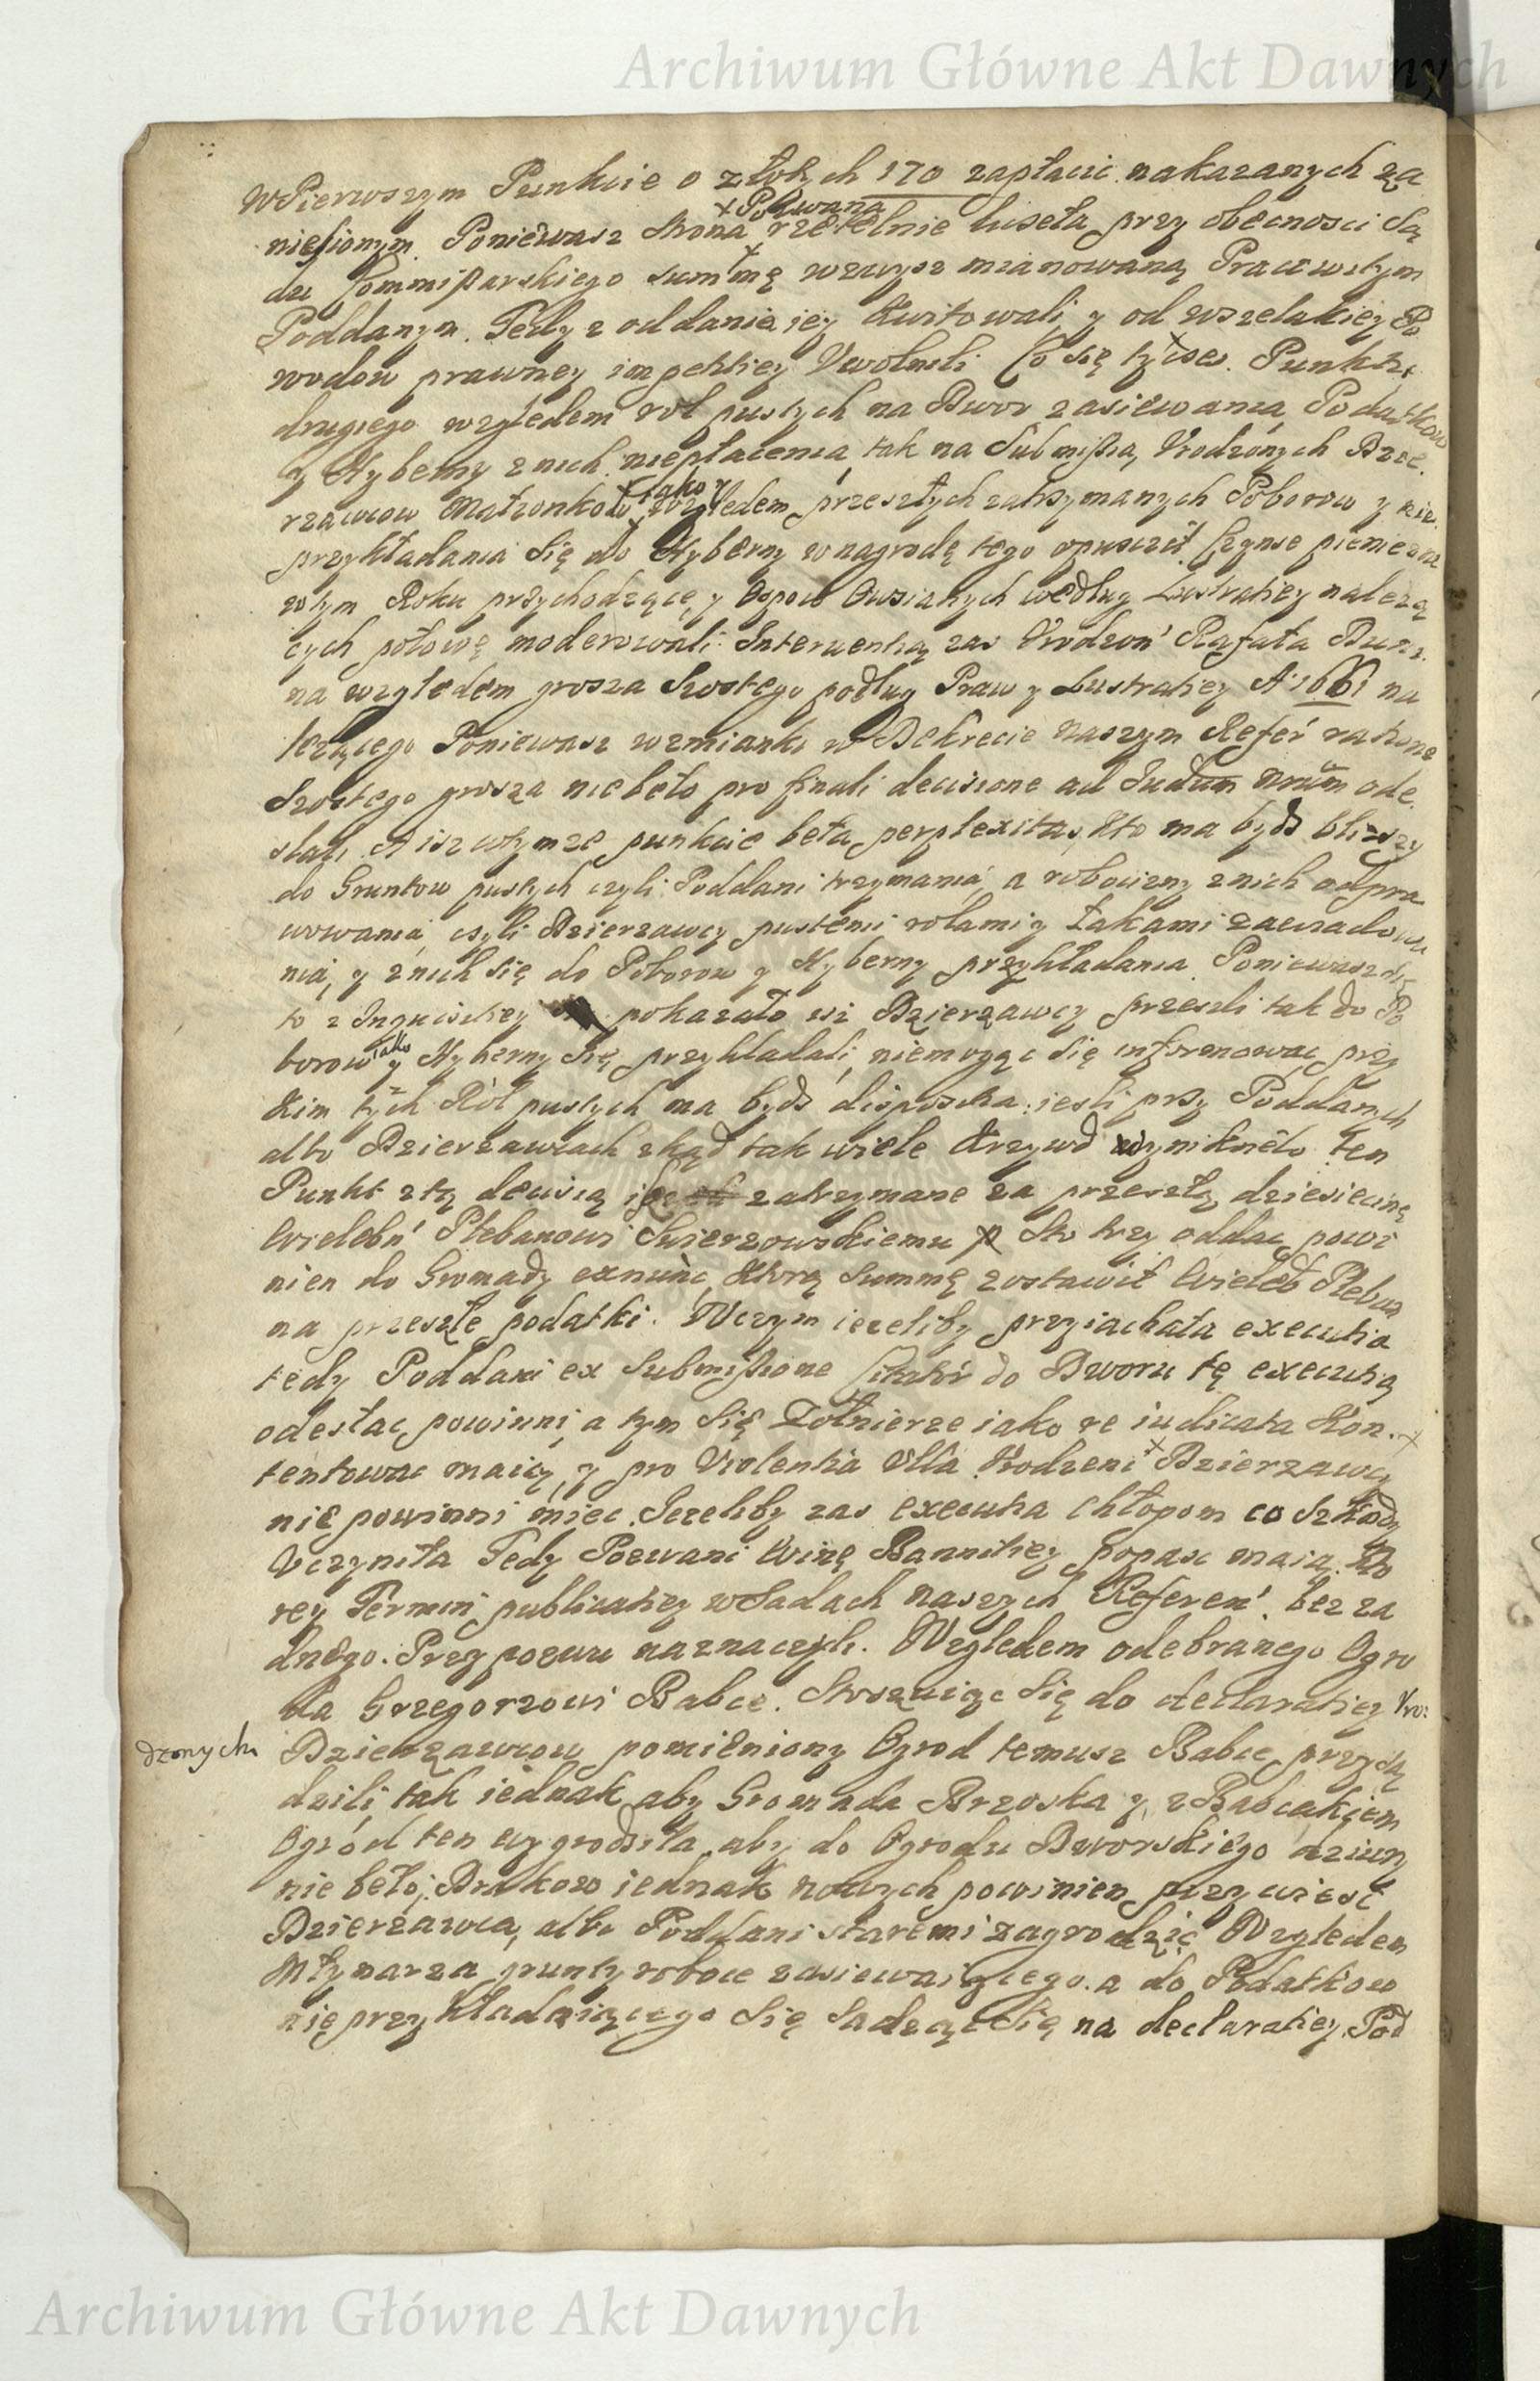 Archiwum Główne Akt Dawnych
W Pierwszym Punkcie o złotych 170 zapłacic nakazanych za
niesionym. Poniewasz Strona +Pozwana rzetelnie luseła przy obecnosci Są
du Commissarskiego Summę wzwysz mianowaną Pracuwitym
Poddanym. Tedy z oddania iey kwitowali y od wszelakiey Po
wodow prawney impetitiey Uwolnili Co się tycse. Punktu
drugiego względem rol pustych na Dwor zasiewania Podatkow
y Hyberny z nich niepłacenia, tak na Submissią Urodzonych Dzie.
rzawcow Małzonkow iako y względem przeszłych zatrzymanych Poborow y nie
przykładania Się do Hyberny w nagrodę tego opuscić Czynsz pieniezne
w tym Roku przychodzące, y Ospow Owsianych według Lustratiey nalezą
cych połowę moderowali. Interuentią zas Urodzon Rafała Burz.
na względem grosza Szostego podług Praw y Lustratiey A 1661 na
lezącego Poniewasz wzmianki w Dekrecie naszym Refer ratione
Szostego grosza nie beło pro finali decisione ad Judum nrum ode.
słali. A isz w tymze punkcie beła perplexitas, kto ma bydz blizszy
do Gruntow pustych czyli Poddani trzymania a robocizny z nich odpra
wowania, czyli Dzierzawcy pustemi rolami y łakami zawiadowa
nia, y z nich się do Poborow y Hyberny przykładania. Poniewasz się
to z Inquisitiey pokazało isz Dzierzawcy przeszli tak do Po
borow iako y Hyberny Się przykładali, niemogąc się informowac przy
kim tych Ról pustych ma bydz disposicia iesli przy Poddanych
albo Dzierzawcach zkąd tak wiele krzywd wynikneło ten
Punkt z tą decisią zatrzymane za przeszłą dziesiecinę
Wielebn Plebanowi Swierzowskiemu sto trzy oddac powi
nien do Gromady exnunc, Ktorą Summę zostawił Wieleb Pleban
na przeszłe podatki. W czym iezeliby przyiachała executia
tedy Poddani ex Submissione Citator do Dworu tę executią
odesłac powinni, a tym Się Zołnierze iako re iudicata Kon.
tentowac maią, y pro Violentia Ulla Urodzeni + Dzierzawcy
nie powinni miec. Iezeliby zas executia chłopom co Szkody
Uczyniła Tedy Pozwani Winę Bannitiey popasc maią. Kto
rey Termin publicatiey w Sadach naszych Referen bez za
dnego. Przypozwu naznaczyli. Względem odebranego Ogro
da Grzegorzowi Babce. Stosuiąc Się do declaratiey Uro:
dzonych Dzierzawcow pomieniony Ogrod temusz Babce przysą
dzili, tak iednak aby Gromada Brzoska y z Babcakiem
Ogród ten wygrodziła, aby do Ogrodu Dworskiego dziury
nie beło, Drukow iednak nowych powinien przywiesć
Dzierzawca, albo Poddani staremi zagrodzić Względem
Młynarza grunty robocze zasiewaiącego. a do Podatkow
nie przykładaiącego Się Sadząc Się na declaratiey Pod
Archiwum Główne Akt Dawnych